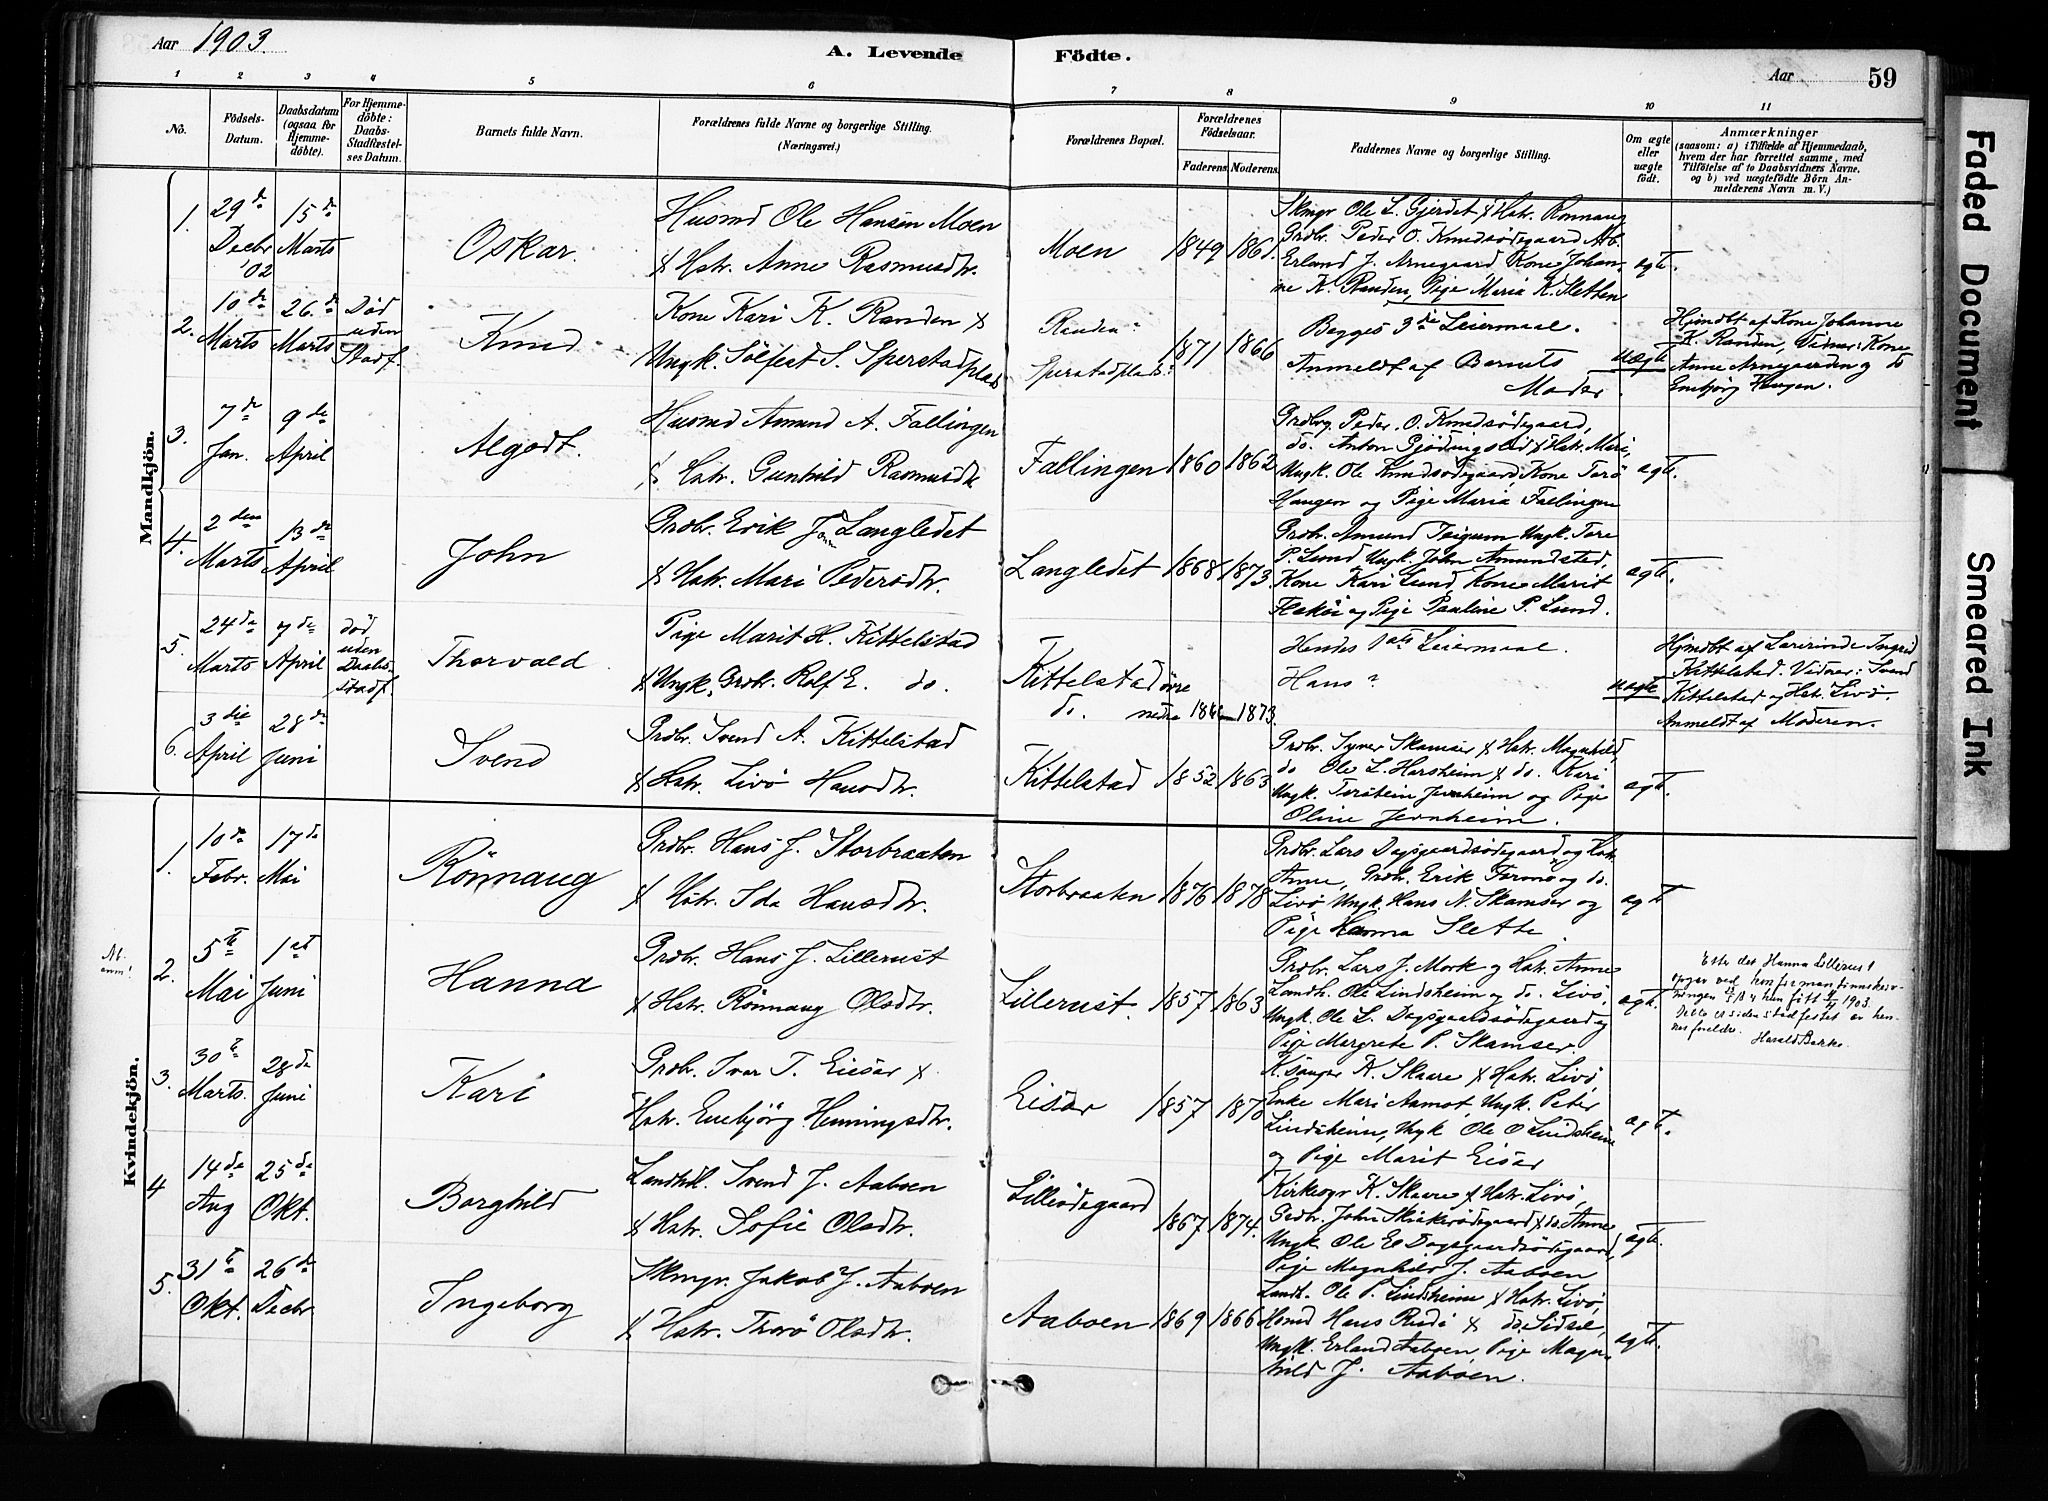 Aar 1903.
A. Levende Födte.
Aar 59
1 2 3 4 5 6 7 8 9 10 11
No.
Födsels-Datum.
Daabsdatum (ogsaa for Hjemme-döbte).
For Hjemme-döbte: Daabs-Stadfæstel-ses Datum.
Barnets fulde Navn.
Forældrenes fulde Navne og borgerlige Stilling.
(Næringsvei.)
Forældrenes Bopæl.
Forældrenes Födselsaar.
Faderens. Moderens.
Faddernes Navne og borgerlige Stilling.
Om ægte eller uægte födt.
Anmærkninger
(saasom: a) i Tilfælde af Hjemmedaab,
hvem der har forrettet samme, med
Tilföielse af to Daabsvidners Navne,
og b) ved uægtefödte Börn An-
melderens Navn m. V.)
Mandkjön.
1. 29de Decbr '02
15de Marts
Oskar.
Husmd Ole Hansen Moen
& Hstr. Anne Rasmusdtr.
Moen 1849
Skmgr Ole L. Gjerdet & Hstr. Rönnaug
Grdbr. Peder O. Knudsödegaard, Arb.
Erland J. Arnegaard, Kone Johan-
ne K. Randen, Pige Maria K. Sletten
ægte.
2. 10de Marts
26de Marts
Död uden Stadf.
Knud
Kone Kari K. Randen &
Ungk. Sölfest S. Sperstadplads
Randen
Sperstadplads
1871 1866
Begges 3die Leiermaal.
Anmeldt af Barnets
Moder.
uægte
Hjmdbt af Kone Johanne
K. Randen, Vidner: Kone
Anne Arnegaarden og do
Enebjörg Haugen.
3. 7de Jan.
9de April
Algodt.
Husmd Amund A. Fallingen
& Hstr. Gunhild Rasmusdtr
Fallingen 1860 1862
Grdbr. Peder O. Knudsödegaard,
do. Anton Gjödingslid & Hstr. Mari,
Ungk. Ole Knudsödegaard, Kone Torö
Haugen og Pige Maria Fallingen
ægte.
4. 2den Marts
13de April
John
Grdbr. Erik J. Langledet
& Hstr. Mari Pedersdtr.
Langledet 1868 1873.
Grdbr. Amund Teigum Ungk. Tore
P. Lund, Ungk. John Amundstad,
Kone Kari Lund, Kone Marit
og Pige Pauline P. Lund.
ægte.
5. 24de Marts
7de April
död uden Daabs-stadf.
Thorvald
Pige Marit H. Kittelstad
& Ungk. Grdbr. Rolf E. do.
Kittelstad övre
do. nedre 1873.
Hendes 1ste Leiermaal.
Hans?
uægte
Hjmdbt af Lærerinde Ingrid
Kittelstad. Vidner: Svend
Kittelstad og Hstr. Livö.
Anmeldt af Moderen.
6. 3die April
28de Juni
Svend
Grdbr. Svend A. Kittelstad
& Hstr. Livö Hansdtr.
Kittelstad 1852 1863
Grdbr. Syver Skamser & Hstr. Magnhild,
do Ole L. Harsheim & do. Kari
Ungk. Torstein Jernheim og Pige
Oline Jernheim.
ægte.
Kvindekjön.
1. 10de Febr.
17de Mai
Rönnaug
Grdbr. Hans J. Storbraaten
& Hstr. Ida Hansdtr.
Storbraaten 1876 1878
Grdbr. Lars Dagsgaardsödegaard og Hstr.
Anne, Grdbr. Erik Formo og do.
Livö, Ungk. Hans N. Skamser og
Pige Hanna Slette
ægte
2. 5te Mai
1st Juni
Hanna
Grdbr. Hans J. Lillerust
& Hstr. Rönnaug Olsdtr.
Lillerust. 1857 1863
Grdbr. Lars J. Mork og Hstr. Anne
Landh. Ole Lindsheim og do. Livö,
Ungk. Ole L. Dagsgaardsödegaard og
Pige Margrete P. Skamser.
ægte.
Etter det Hanna Lillerust
opgav ved konfirmantinnskriv-
ningen er hun född 1903.
Dette er siden stadfestet av hen-
nes foreldre.
Harald Bakke.
3. 30te Marts.
28de Juni
Kari
Grdbr. Ivar T. Eisar &
Hstr. Enebjörg Henningsdtr.
Eisar 1857 1870
K.sanger K. Skaare & Hstr. Livö,
Enke Mari Aamot, Ungk. Peter
Lindsheim, Ungk. Ole O Lindsheim
og Pige Marit Eisar
ægte.
4 14de Aug
25de Okt.
Borghild
Landhdl. Svend J. Aaboen
& Hstr. Sofie Olsdtr.
Lilleödegaard
1867 1874.
Kirkesgr K. Skaare & Hstr. Livö,
Grdbr. John Skiakerödegaard & do. Anne
Ungk. Ole El Dagsgaardsödegaard,
Pige Magnhild J. Aaboen
ægte.
5. 31te Okt.
26de Decbr
Ingeborg
Skmgr. Jakob J. Aaboen
& Hstr. Thorö Olsdtr.
Aaboen 1869 1866
Landh. Ole P. Lindsheim & Hstr. Livö,
Hsmd Hans Rudi & do. Sidsel,
Ungk. Erland Aaboen, Pige Magn-
hild J. Aaboen.
ægte.
Faded Document
Smeared Ink